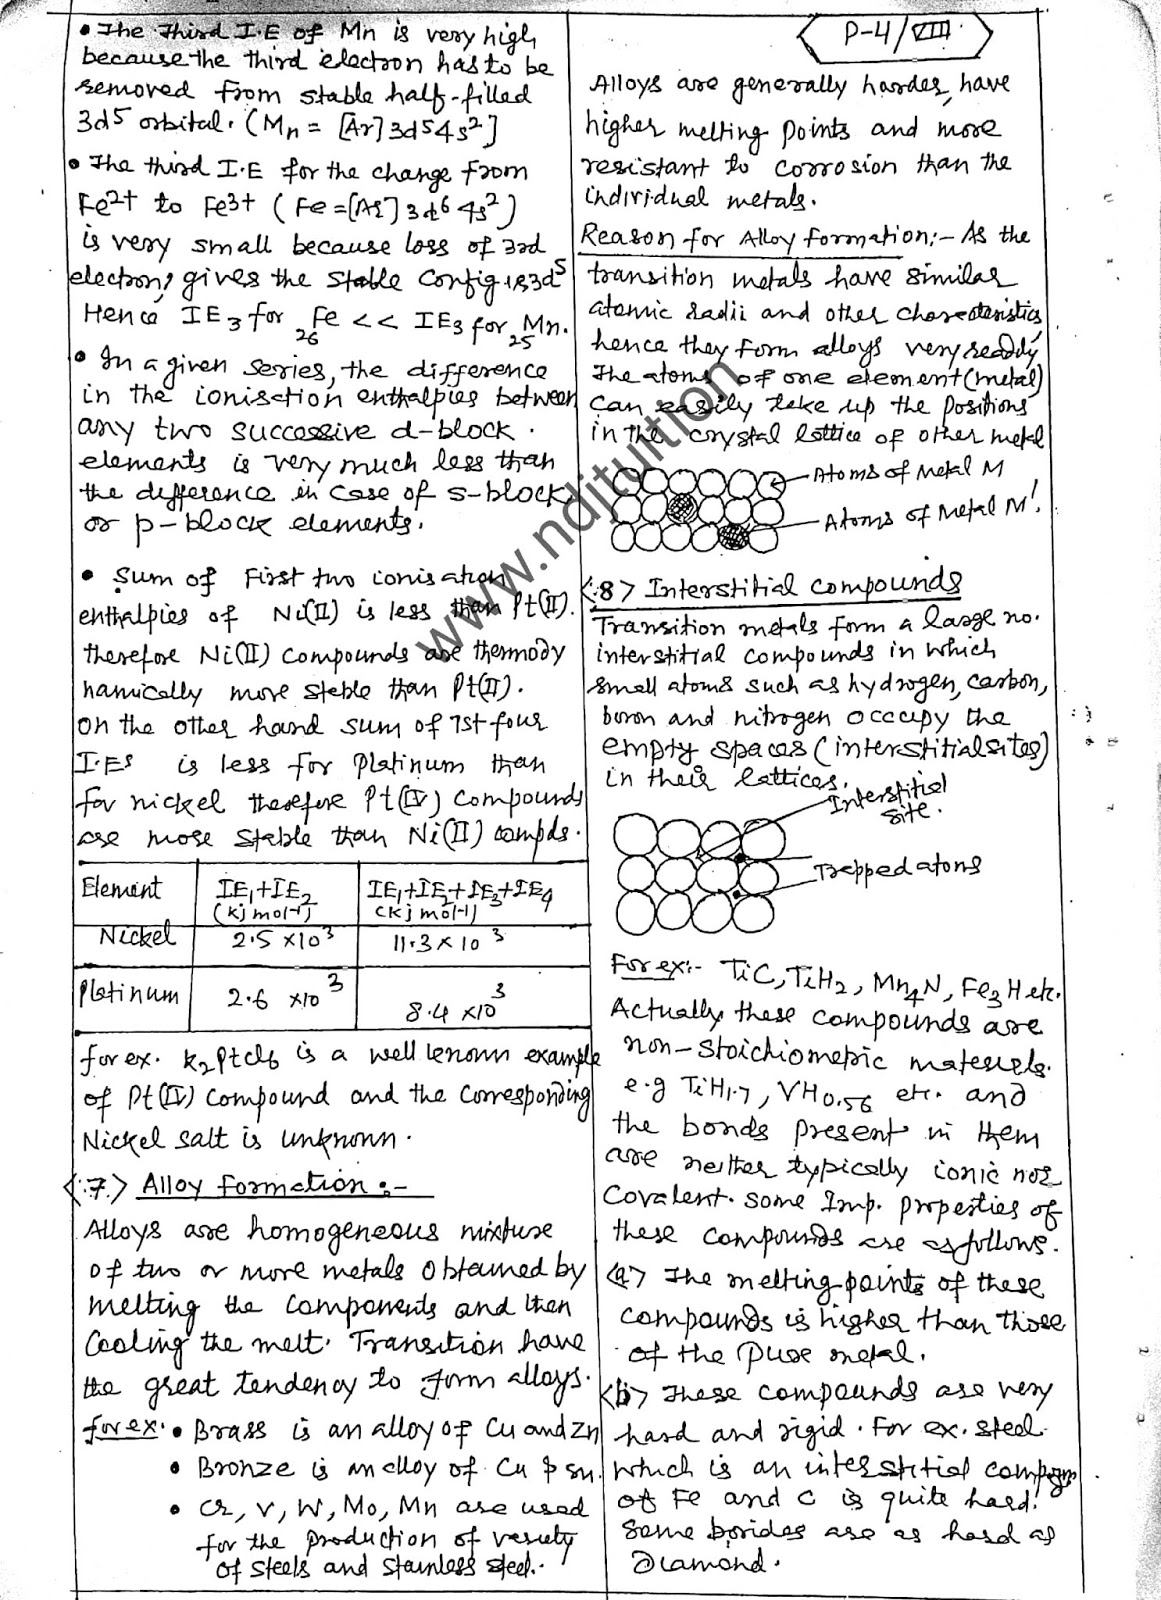 • The Third I.E of Mn is very high,
because the third electron has to be
removed from stable half-filled
3d5 orbital. (Mn = [Ar] 3d5 4s2]
• The third I.E for the change from
Fe2+ to Fe3+ (Fe = [Ar] 3d6 4s2)
is very small because loss of 3rd
electron, gives the stable Config is 3d5
Hence IE3 for 26Fe << IE3 for 25Mn.
• In a given series, the difference
in the ionisation enthalpies between
any two successive d-block.
elements is very much less than
the difference in case of s-block
or p-block elements.
• Sum of First two ionisation
enthalpies of Ni(II) is less than Pt(II).
therefore Ni(II) compounds are thermody
namically more stable than Pt(II).
on the other hand sum of 1st four
I.Es is less for Platinum than
for nickel therefore Pt(IV) compounds
are more stable than Ni(II) compds.
Element IE1+IE2 (kj mol-1) IE1+IE2+IE3+IE4 (kj mol-1)
Nickel 2.5 ×10 3 11.3 × 10 3
Platinum 2.6 ×10 3 8.4 ×10 3
for ex. K2PtCl6 is a well known example
of Pt(IV) Compound and the Corresponding
Nickel salt is unknown.
<:7.> Alloy formation :-
Alloys are homogeneous mixture
of two or more metals obtained by
melting the components and then
Cooling the melt. Transition have
the great tendency to form alloys.
for ex: • Brass is an alloy of Cu and Zn
• Bronze is an alloy of Cu & Sn.
• Cr, V, W, Mo, Mn are used
for the production of variety
of steels and stainless steel.
P-4/VIII
Alloys are generally harder, have
higher melting points and more
resistant to corrosion than the
individual metals.
Reason for Alloy formation:- As the
transition metals have similar
atomic radii and other charecteristics,
hence they form alloys very readily
The atoms of one element (metal)
can easily take up the positions
in the crystal lattice of other metal
Atoms of Metal M
Atoms of Metal M'.
<:8> Interstitial compounds
Transition metals form a large no.
interstitial compounds in which
small atoms such as hydrogen, carbon,
boron and nitrogen occupy the
empty spaces (interstitial sites)
in their lattices.
Interstitial
site.
Trapped atoms
For ex:- TiC, TiH2, Mn4N, Fe3H etc.
Actually these compounds are
non-stoichiometric materials.
e.g TiH1.7, VH0.56 etc. and
the bonds present in them
are neither typically ionic nor
Covalent. Some Imp. properties of
these compounds are as follows.
<a> The melting points of these
compounds is higher than those
of the pure metal.
<b> These compounds are very
hard and rigid. For ex. steel.
which is an interstitial compound
of Fe and C is quite hard.
Some borides are as hard as
Diamond.
www.ndjtuition